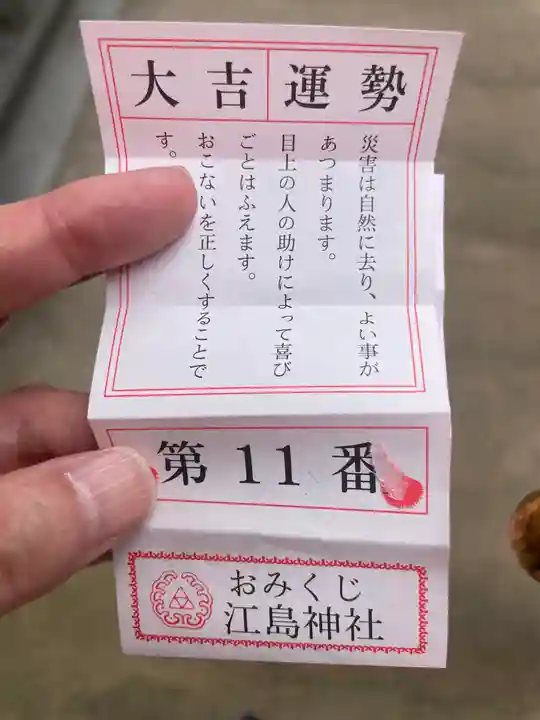 大吉
運勢
災害は自然に去り、よい事が
あつまります。
目上の人の助けによって喜び
ごとはふえます。
おこないを正しくすることで
す。
第11番
おみくじ
江島神社